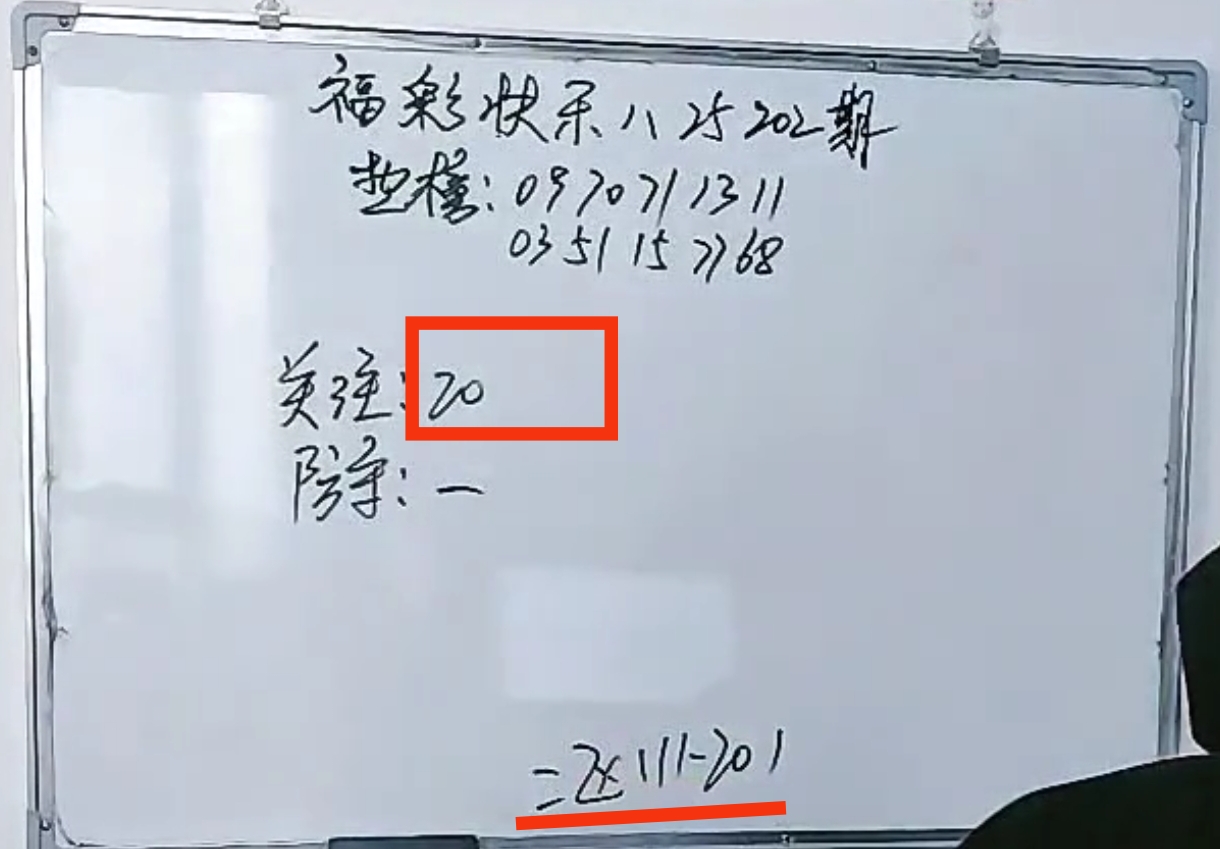 福彩快乐八25202期
垫樁：0970711311
0351157768
关注：20
防守：一
二区111-201